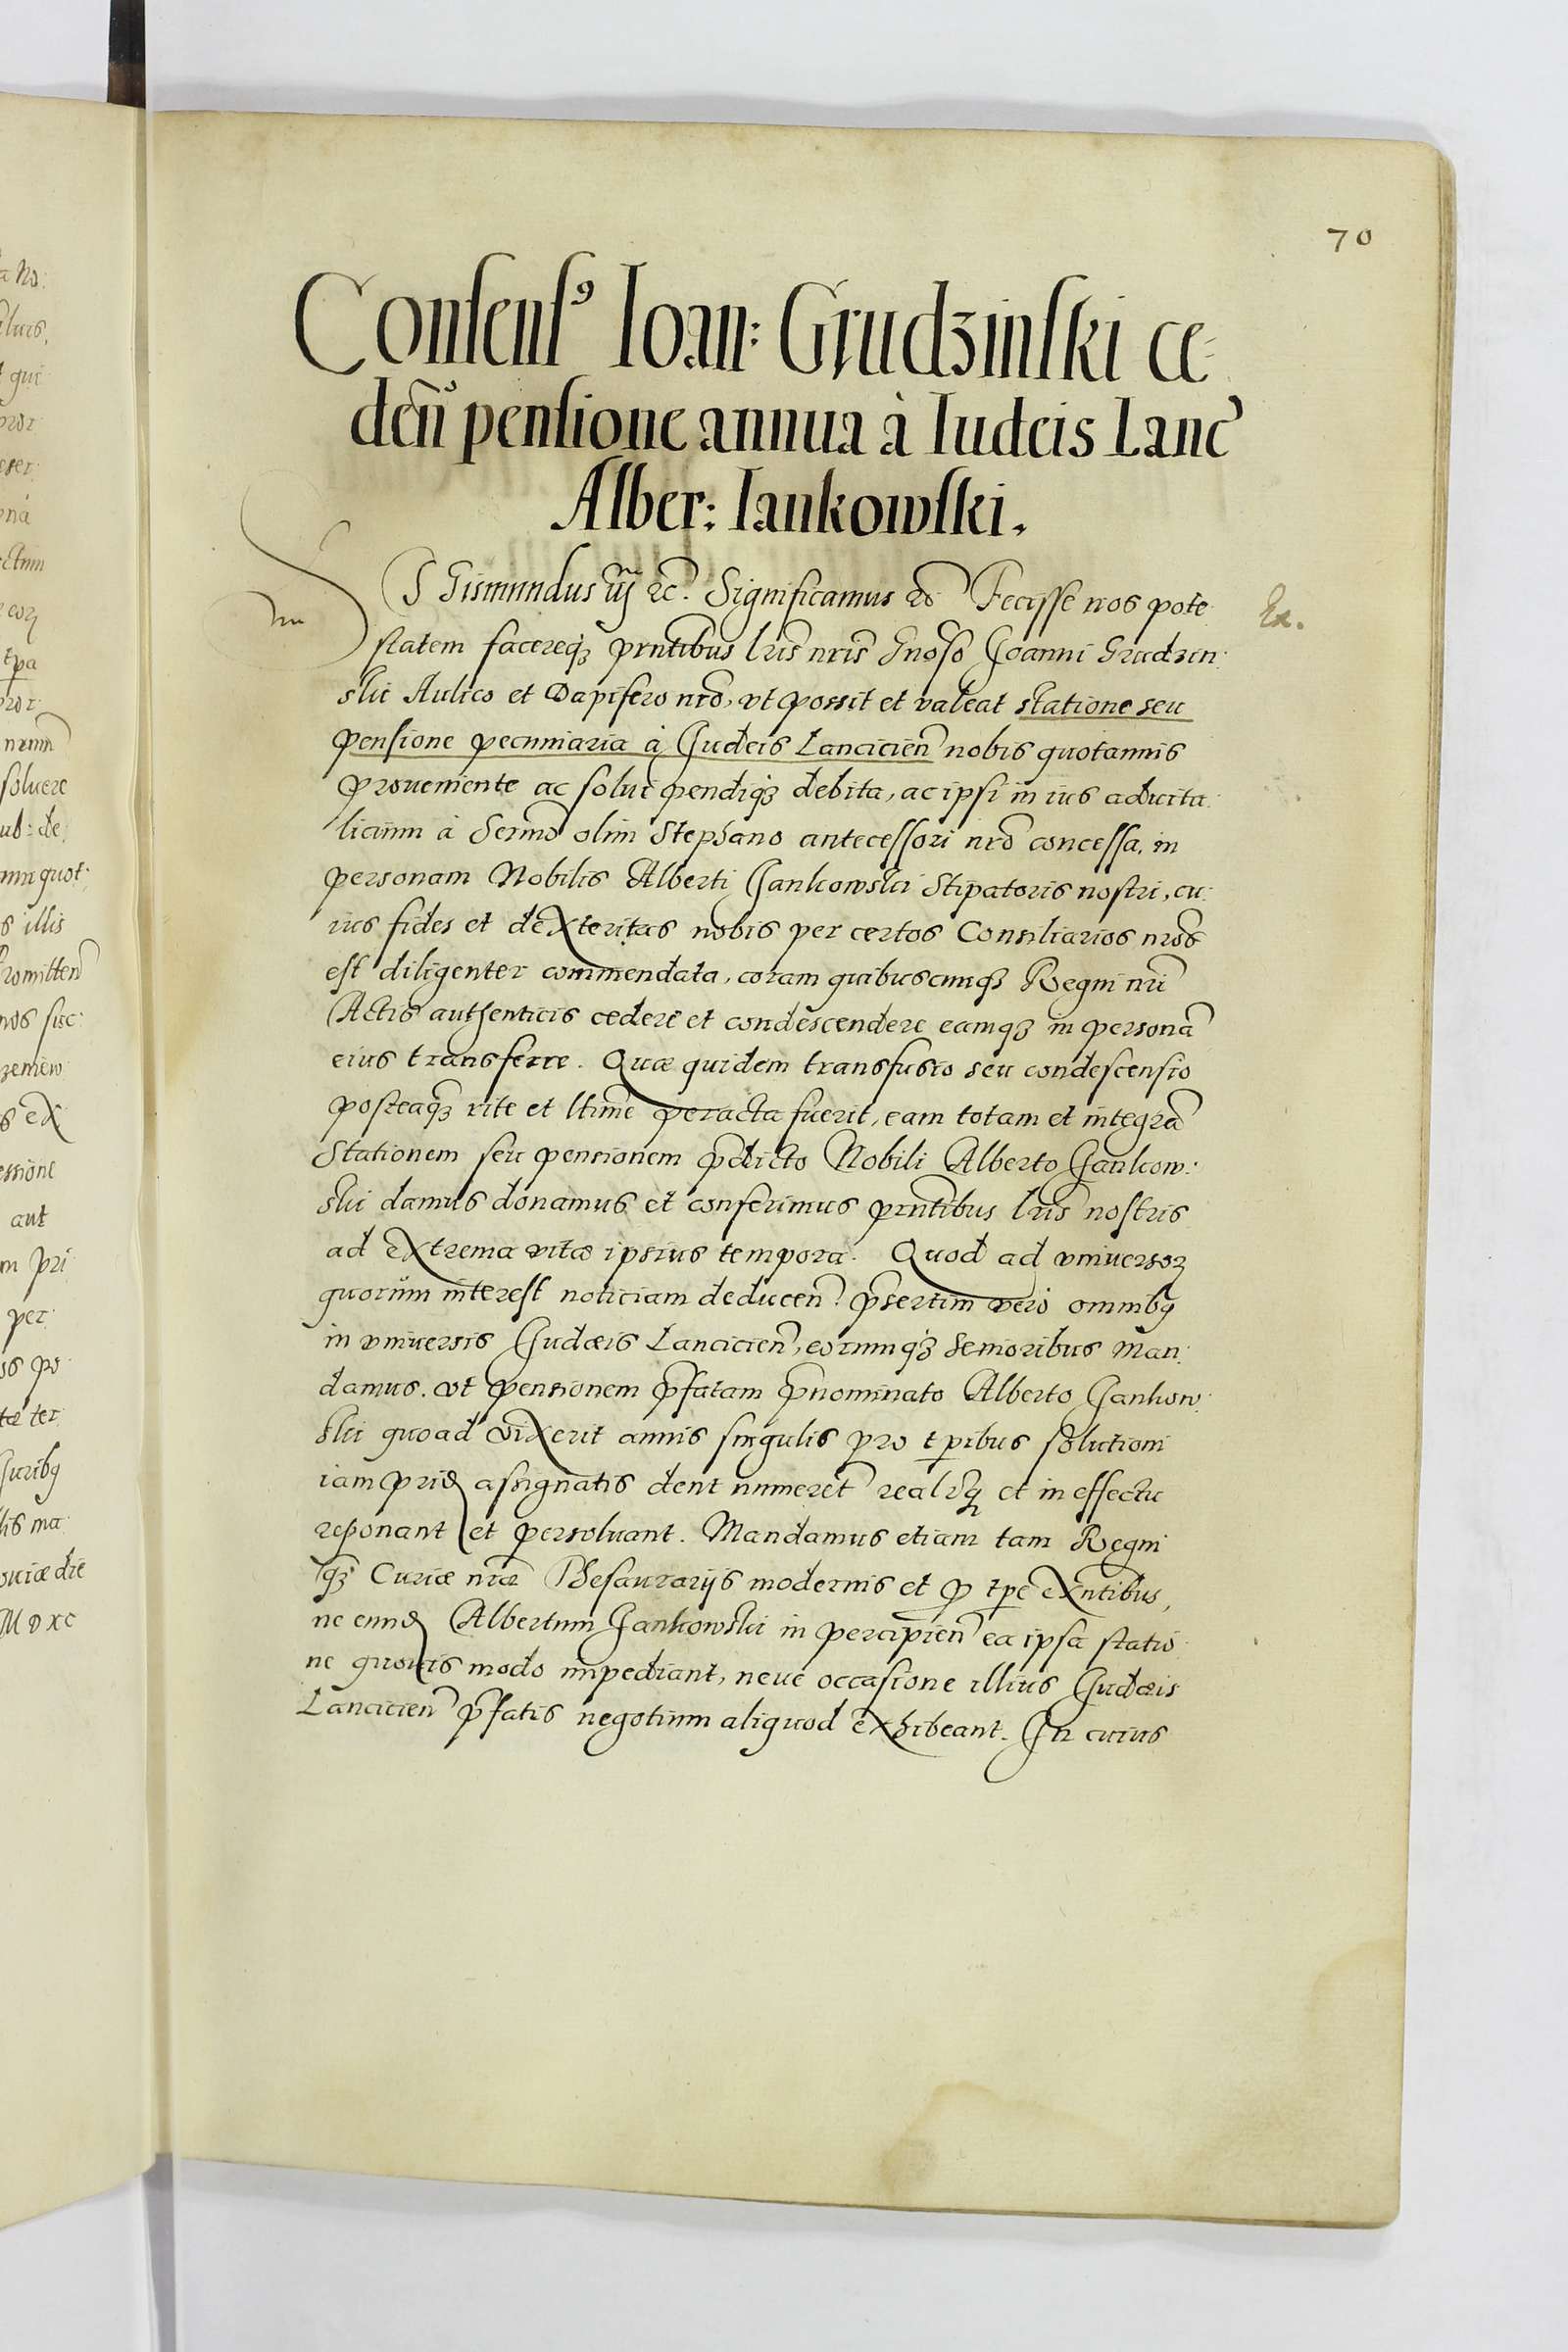 70
Consens⁹ Ioan: Grudzinski ce=
den̄ pensione annua à Iudeis Lanc̃
Alber: Iankowski.
SGismundus iij ꝛc̃. Significamus ꝛc̃ Fecisse nos pote
Ex.
statem facereqꝫ pr̃ntibus lr̃is nr̃is Gnõso Joanni Grudzin:
ski Aulico et Dapifero nr̃o, vt possit et valeat statione seu
pensione pecuniaria à Judeis Lancicien̄ nobis quotannis
proueniente ac solui pendiqꝫ debita, ac ipsi in ius aduita
licium à Sermõ olim Stephano antecessori nr̃o concessa, in
personam Nobilis Alberti Jankowski Stipatoris nostri, cu
ius fides et dexteritas nobis per certos Consiliarios nr̃os
est diligenter commendata, coram quibuscunqꝫ Regni nr̃i
Actis authenticis cedere et condescendere eamqꝫ in personã
eius transferre. Quæ quidem transfusio seu condescensio
posteaqꝫ rite et ltime peracta fuerit, eam totam et integrã
Stationem seu pensionem p̃dicto Nobili Alberto Jankow:
ski damus donamus et conferimus pr̃ntibus lr̃is nostris
ad extrema vitæ ipsius tempora. Quod ad vniuersoꝝ
quorum interest noticiam deducen̄. p̃sertim vero omnibꝯ
in vniuersis Judæis Lancicien̄, eorumqꝫ Senioribus Man:
damus. vt pensionem p̃fatam p̃nominato Alberto Jankow:
ski quoad vixerit annis singulis pro tp̱ribus solutioni
iam prid̃ assignatis dent numeret̃ realrqꝫ et in effectu
reponant et persoluant. Mandamus etiam tam Regni
qꝫ Curiæ nr̃æ Thesaurarijs modernis et ꝓ tp̱e exn̄tibus,
ne eund̃ Albertum Jankowski in percipien̄ ea ipsa statio
ne quouis modo impediant, neue occasione illius Judæis
Lancicien̄ p̃fatis negotium aliquod exhibeant. In cuius